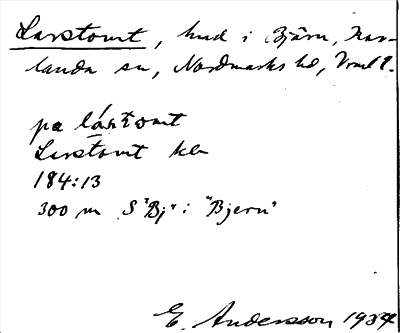 Larstomt, hmd i Bjärn, Kar-
landa sn, Nordmarks hd, Vrml.
på lárstomt
Larstomt kbn
184:13
300 m S "Bj" i "Bjern"
E. Andersson 1934